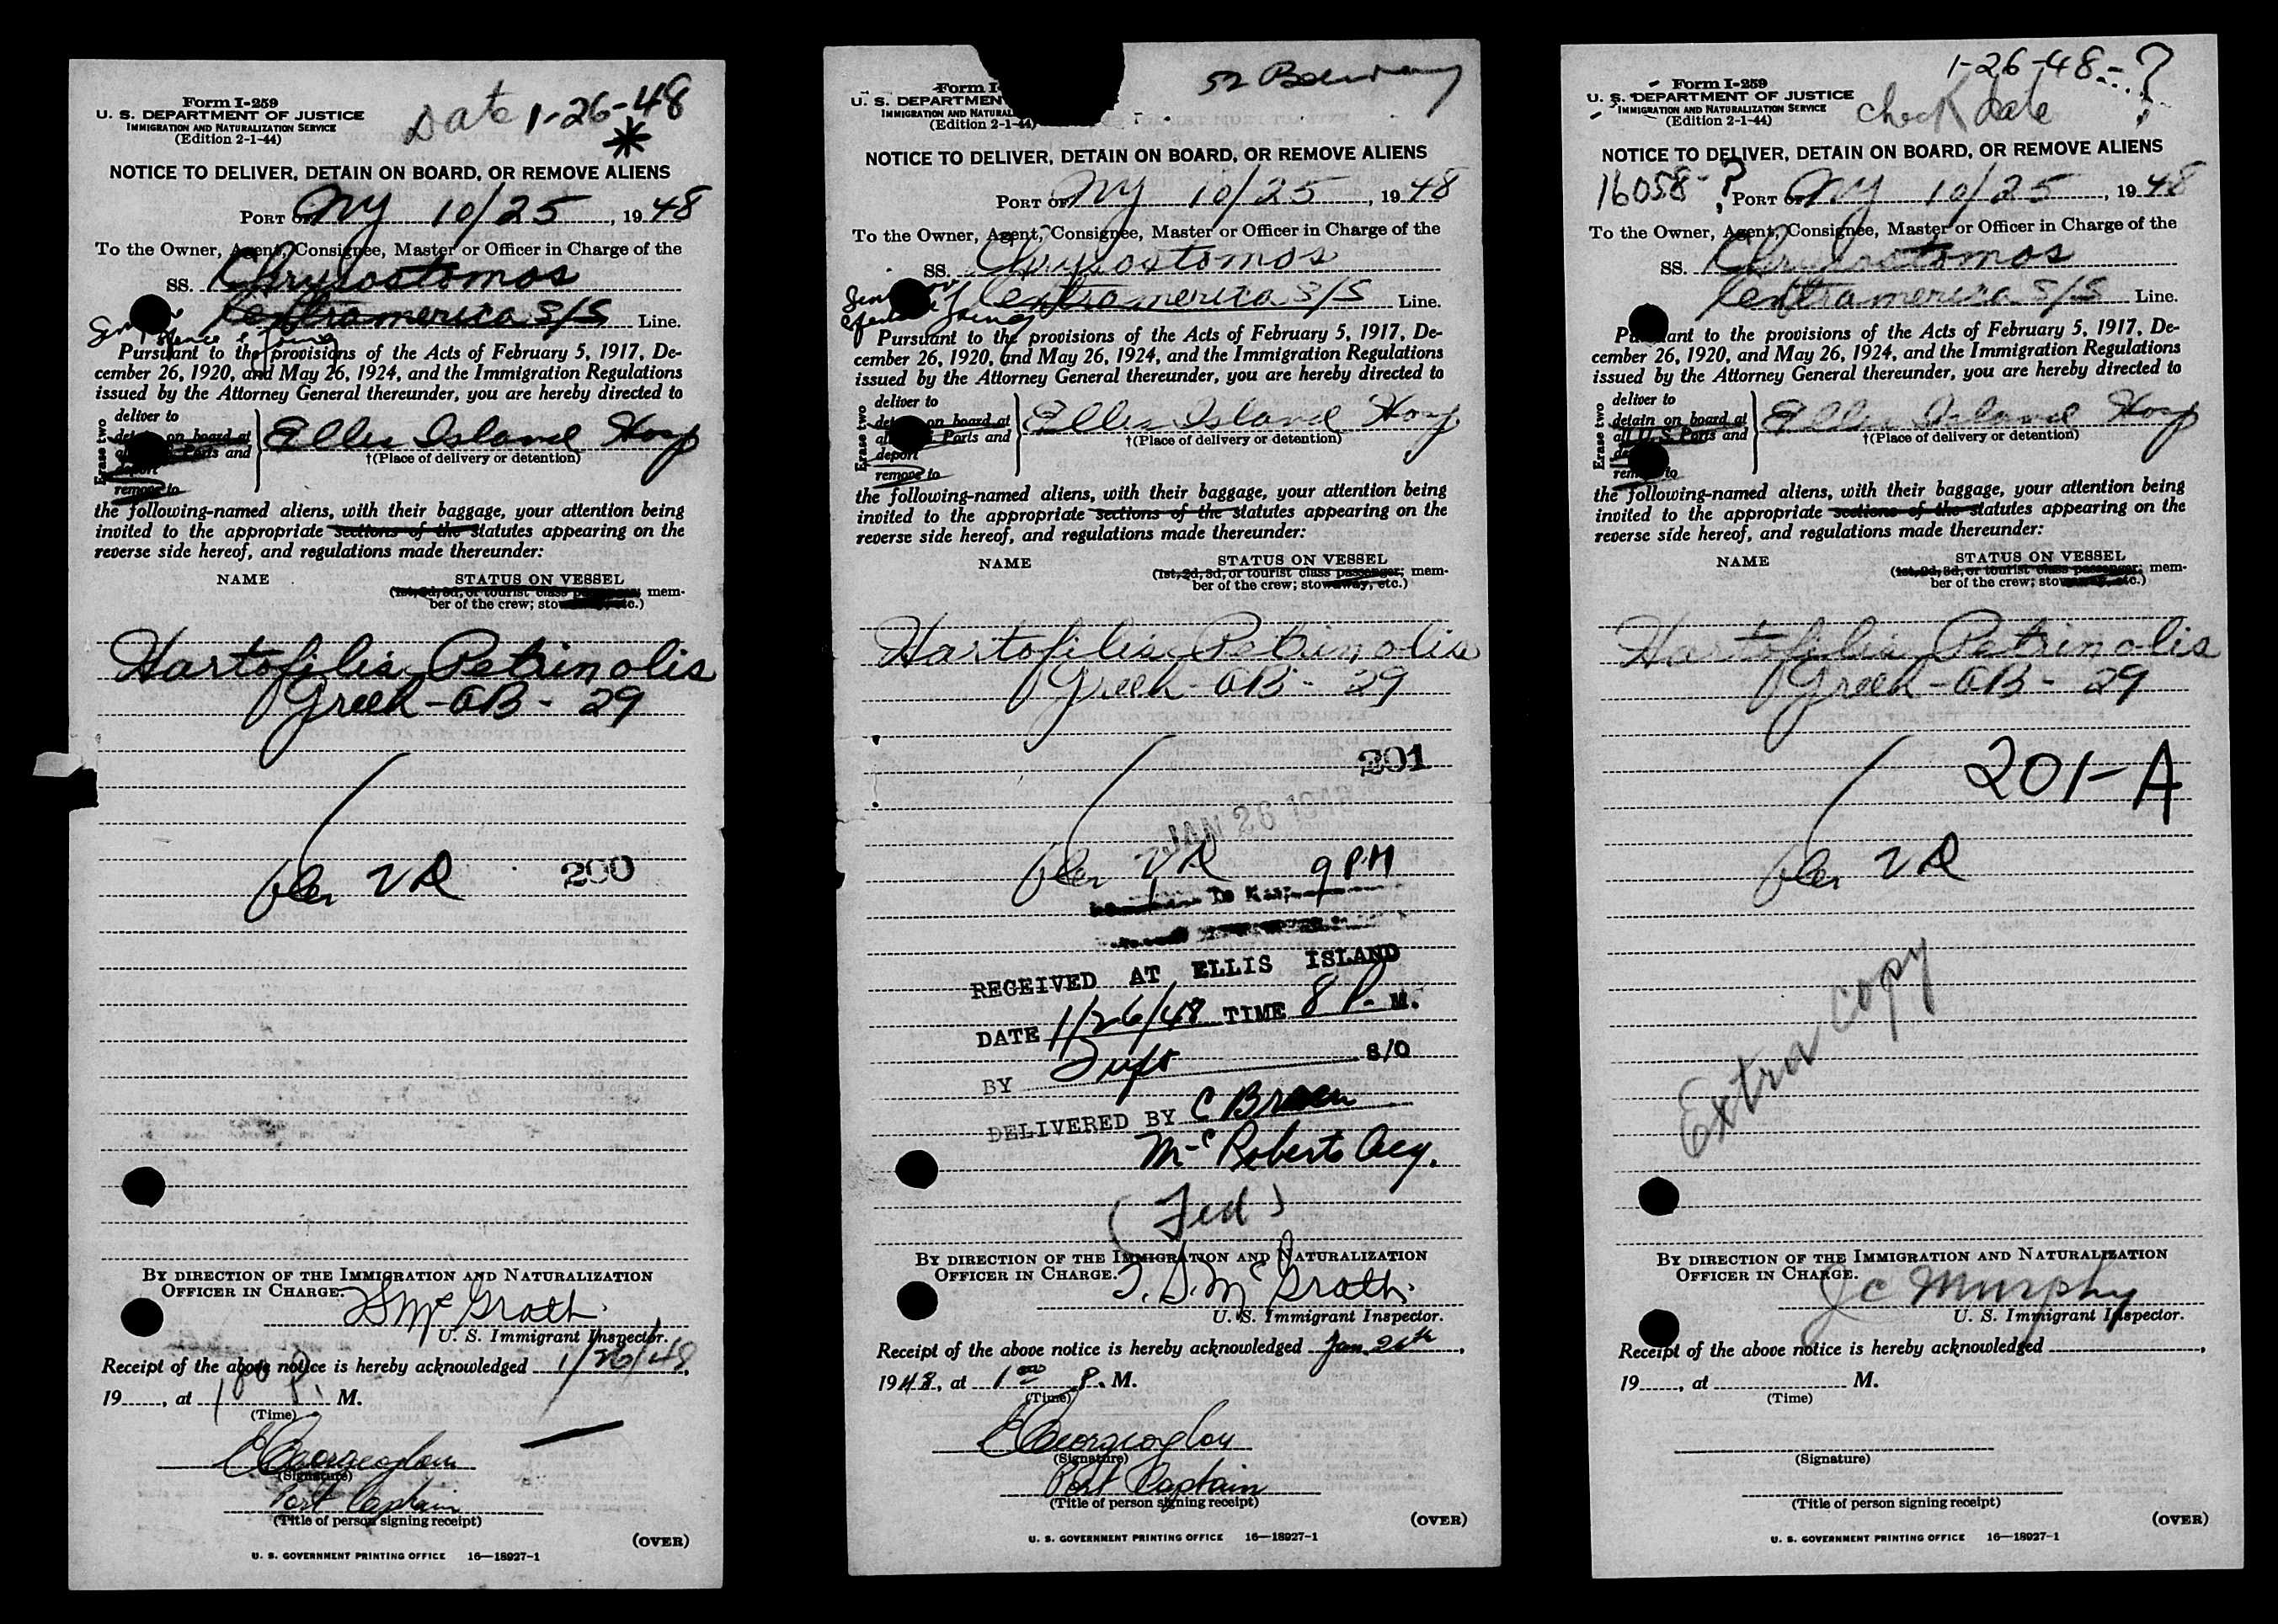 Form I-259
U. S. DEPARTMENT OF JUSTICE
IMMIGRATION AND NATURALIZATION SERVICE
(Edition 2-1-44)
Date 1-26-48
*
NOTICE TO DELIVER, DETAIN ON BOARD, OR REMOVE ALIENS
PORT OF NY 10/25, 1948
To the Owner, Agent, Consignee, Master or Officer in Charge of the
SS. Chrysostomos
Centramerica S/S Line.
Pursuant to the provisions of the Acts of February 5, 1917, De-
cember 26, 1920, and May 26, 1924, and the Immigration Regulations
issued by the Attorney General thereunder, you are hereby directed to
Erase two
deliver to
on board at
Ports and
deport
remove to
Ellis Island Hosp
†(Place of delivery or detention)
the following-named aliens, with their baggage, your attention being
invited to the appropriate sections of the statutes appearing on the
reverse side hereof, and regulations made thereunder:
NAME
STATUS ON VESSEL
(1st, 2d, 3d, or tourist class passenger; mem-
ber of the crew; stowaway, etc.)
Hartofilis Petrinolis
Greek - OB - 29
/
per VR 200
BY DIRECTION OF THE IMMIGRATION AND NATURALIZATION
OFFICER IN CHARGE.
McGrath
U. S. Immigrant Inspector.
Receipt of the above notice is hereby acknowledged 1/26/48,
19, at 1 00 P. M.
(Time)
(Signature)
Port Captain
(Title of person signing receipt)
(OVER)
U. S. GOVERNMENT PRINTING OFFICE 16—18927-1
Form I-
U. S. DEPARTMEN
IMMIGRATION AND NATURAL
(Edition 2-1-44)
52
NOTICE TO DELIVER, DETAIN ON BOARD, OR REMOVE ALIENS
PORT OF NY 10/25, 1948
To the Owner, Agent, Consignee, Master or Officer in Charge of the
SS. Chrysostomos
Centramerica S/S Line.
Pursuant to the provisions of the Acts of February 5, 1917, De-
cember 26, 1920, and May 26, 1924, and the Immigration Regulations
issued by the Attorney General thereunder, you are hereby directed to
Erase two
deliver to
on board at
Ports and
deport
remove to
Ellis Island Hosp
†(Place of delivery or detention)
the following-named aliens, with their baggage, your attention being
invited to the appropriate sections of the statutes appearing on the
reverse side hereof, and regulations made thereunder:
NAME
STATUS ON VESSEL
(1st, 2d, 3d, or tourist class passenger; mem-
ber of the crew; stowaway, etc.)
Hartofilis Petrinolis
Greek - OB - 29
201
/
JAN 26 1948
per VR 9 PM
RECEIVED AT ELLIS ISLAND
DATE 1/26/48 TIME 8 P. M.
BY S/O
DELIVERED BY C
McRoberts Acy.
BY DIRECTION OF THE IMMIGRATION AND NATURALIZATION
OFFICER IN CHARGE.
T. S. McGrath
U. S. Immigrant Inspector.
Receipt of the above notice is hereby acknowledged Jan 26th,
1948, at 1 00 P. M.
(Time)
(Signature)
Port Captain
(Title of person signing receipt)
(OVER)
U. S. GOVERNMENT PRINTING OFFICE 16—18927-1
1-26-48 - ?
Form I-259
U. S. DEPARTMENT OF JUSTICE
IMMIGRATION AND NATURALIZATION SERVICE
(Edition 2-1-44)
check date
NOTICE TO DELIVER, DETAIN ON BOARD, OR REMOVE ALIENS
16058 - ?
PORT OF NY 10/25, 1948
To the Owner, Agent, Consignee, Master or Officer in Charge of the
SS. Chrysostomos
Centramerica S/S Line.
Pursuant to the provisions of the Acts of February 5, 1917, De-
cember 26, 1920, and May 26, 1924, and the Immigration Regulations
issued by the Attorney General thereunder, you are hereby directed to
Erase two
deliver to
detain on board at
all U. S. Ports and
remove to
Ellis Island Hosp
†(Place of delivery or detention)
the following-named aliens, with their baggage, your attention being
invited to the appropriate sections of the statutes appearing on the
reverse side hereof, and regulations made thereunder:
NAME
STATUS ON VESSEL
(1st, 2d, 3d, or tourist class passenger; mem-
ber of the crew; stowaway, etc.)
Hartofilis Petrinolis
Greek - OB - 29
201-A
/
per VR
Extra copy
BY DIRECTION OF THE IMMIGRATION AND NATURALIZATION
OFFICER IN CHARGE.
J C Murphy
U. S. Immigrant Inspector.
Receipt of the above notice is hereby acknowledged ,
19, at M.
(Time)
(Signature)
(Title of person signing receipt)
(OVER)
U. S. GOVERNMENT PRINTING OFFICE 16—18927-1